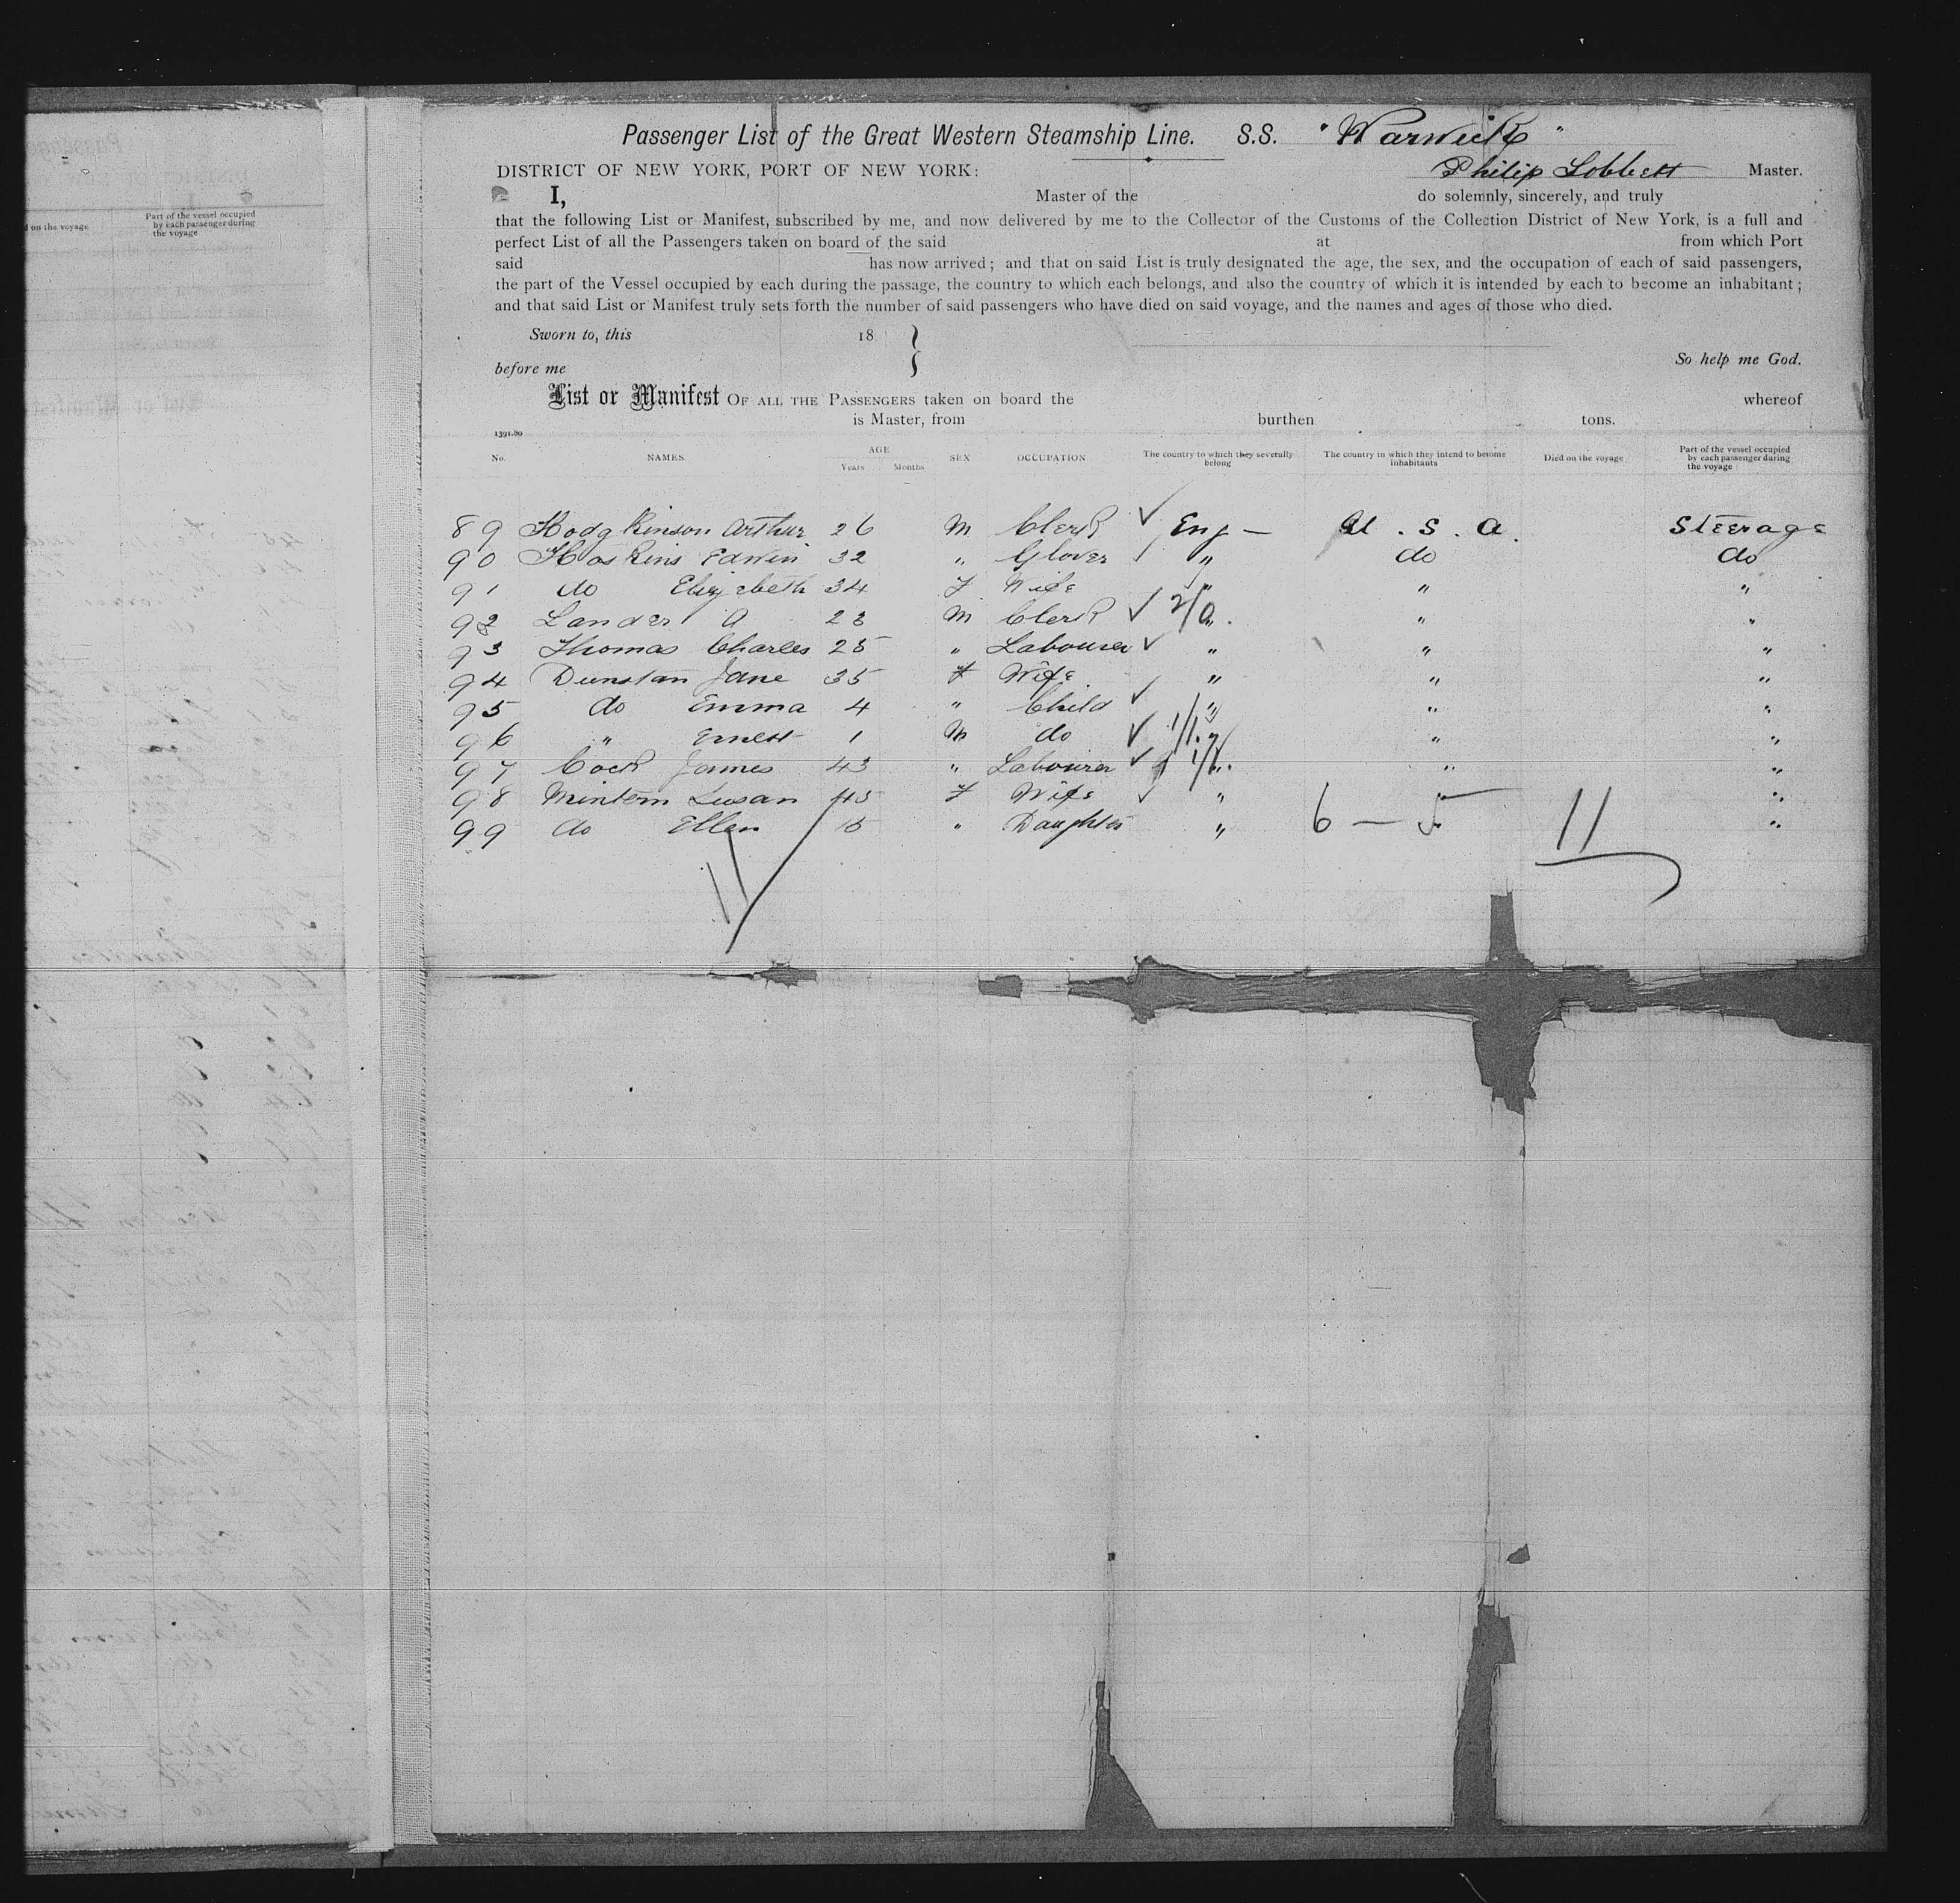 d on the voyage
Part of the vessel occupied
by each passenger during
the voyage
Passenger List of the Great Western Steamship Line. S.S. "Warwick"
DISTRICT OF NEW YORK, PORT OF NEW YORK: Philip Lobbett Master.
I, Master of the do solemnly, sincerely, and truly
that the following List or Manifest, subscribed by me, and now delivered by me to the Collector of the Customs of the Collection District of New York, is a full and
perfect List of all the Passengers taken on board of the said at from which Port
said has now arrived; and that on said List is truly designated the age, the sex, and the occupation of each of said passengers,
the part of the Vessel occupied by each during the passage, the country to which each belongs, and also the country of which it is intended by each to become an inhabitant;
and that said List or Manifest truly sets forth the number of said passengers who have died on said voyage, and the names and ages of those who died.
Sworn to, this 18 }
before me So help me God.
List or Manifest OF ALL THE PASSENGERS taken on board the whereof
is Master, from burthen tons.
1391.80
No. NAMES. AGE Years Months SEX OCCUPATION The country to which they severally belong The country in which they intend to become inhabitants Died on the voyage Part of the vessel occupied by each passenger during the voyage
89 Hodgkinson Arthur 26 M Clerk ✓ Eng — U.S.A. Steerage
90 Hoskins Edwin 32 " Glover ✓ " do do
91 do Elizabeth 34 F Wife " " "
92 Lander A 23 M Clerk ✓ 2/0 " " "
93 Thomas Charles 25 " Labourer ✓ " " "
94 Dunstan Jane 35 F Wife " " "
95 do Emma 4 " Child ✓ " " "
96 " Ernest 1 M do ✓ 1/1 " " "
97 Cock James 43 " Labourer ✓ 1/1 " " "
98 Mintern Susan 45 F Wife ✓ " "
99 do Ellen 15 " Daughter " 6 — 5 11 "
11